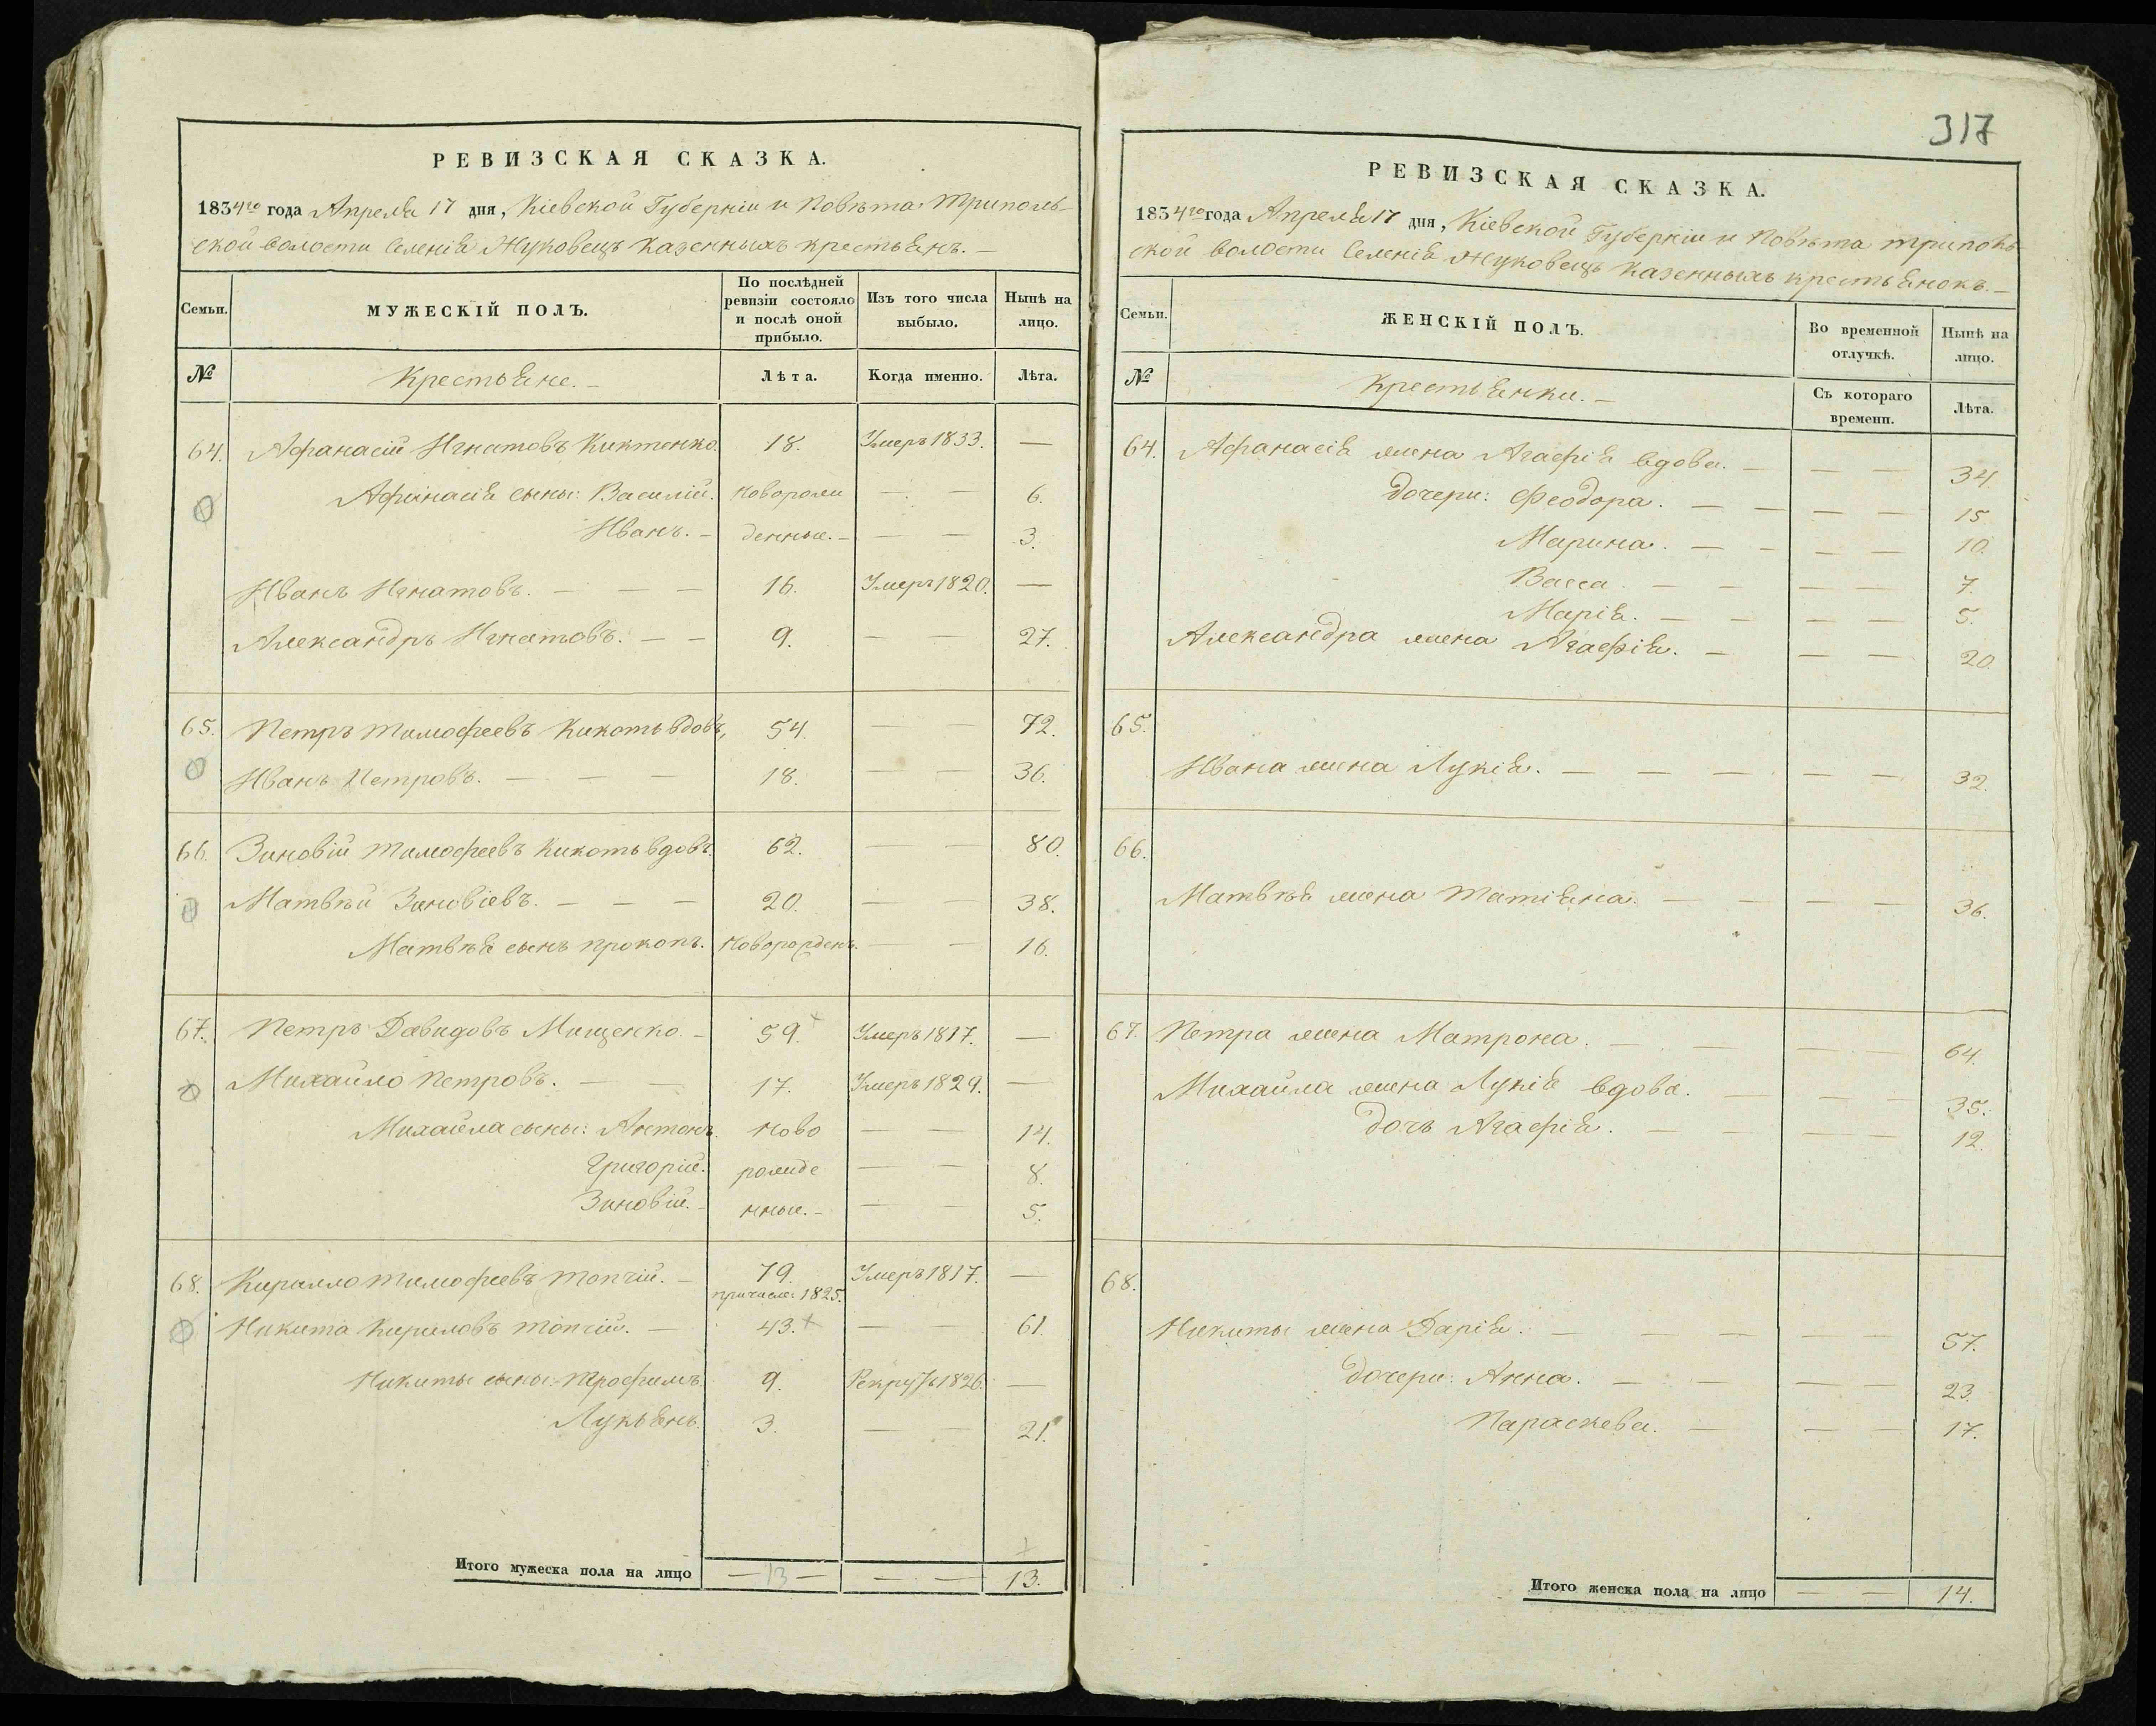 РЕВИЗСКАЯ СКАЗКА.
1834го года Апреля 17 дня, Кіевской Губерніи и Повѣта Триполь-
ской волости Селенія Жуковецъ Казенныхъ крестьянъ.—
Семьи. МУЖЕСКІЙ ПОЛЪ. По послѣдней ревизіи состояло и послѣ оной прибыло. Изъ того числа выбыло. Нынѣ на лицо.
№ Крестьяне.— Лѣта. Когда именно. Лѣта.
64. Афанасій Игнатовъ Киктенко. 18. Умеръ 1833. —
Афанасія сыны: Василій. Новорож — — 6.
Иванъ. — денные. — — — 3.
Иванъ Игнатовъ. — — — 16. Умеръ 1820. —
Александръ Игнатовъ. — — 9. — — 27.
65. Петръ Тимофеевъ Кикоть вдовъ, 54. — — 72.
Иванъ Петровъ. — — — 18. — — 36.
66. Зиновій Тимофеевъ Кикоть вдовъ. 62. — — 80.
Матвѣй Зиновіевъ. — — — 20. — — 38.
Матвѣя сынъ Прокопъ. Новорожденъ. — — 16.
67. Петръ Давидовъ Мищенко. — 59. Умеръ 1817. —
Михайло Петровъ. — — 17. Умеръ 1829. —
Михайла сыны: Антонъ. Ново — — 14.
Григорій. рожде — — 8.
Зиновій. — нные. — — — 5.
68. Кирилло Тимофеевъ Топчій. — 79. Умеръ 1817. —
причисле: 1825.
Никита Кириловъ Топчій. — 43. — — 61.
Никиты сыны: Трофимъ. 9. Рекрутъ 1826. —
Лукьянъ. 3. — — 21.
Итого мужеска пола на лицо — 13 — — — 13.
317
РЕВИЗСКАЯ СКАЗКА.
1834го года Апреля 17 дня, Кіевской Губерніи и Повѣта Триполь-
ской волости Селенія Жуковецъ Казенныхъ крестьянокъ.—
Семьи. ЖЕНСКІЙ ПОЛЪ. Во временной отлучкѣ. Нынѣ на лицо.
№ Крестьянки.— Съ котораго времени. Лѣта.
64. Афанасія жена Агафія вдова. — — — 34.
Дочери: Феодора. — — — — 15.
Марина. — — — — 10.
Васса. — — — — 7.
Марія. — — — — 5.
Александра жена Агафія. — — — 20.
65.
Ивана жена Лукія. — — — — — 32.
66.
Матвѣя жена Татіяна. — — — — 36.
67. Петра жена Матрона. — — — — 64.
Михайла жена Лукія вдова. — — — 35.
дочь Агафія. — — — — 12.
68.
Никиты жена Дарія. — — — — — 57.
Дочери: Анна. — — — — 23.
Параскева. — — — 17.
Итого женска пола на лицо — — 14.